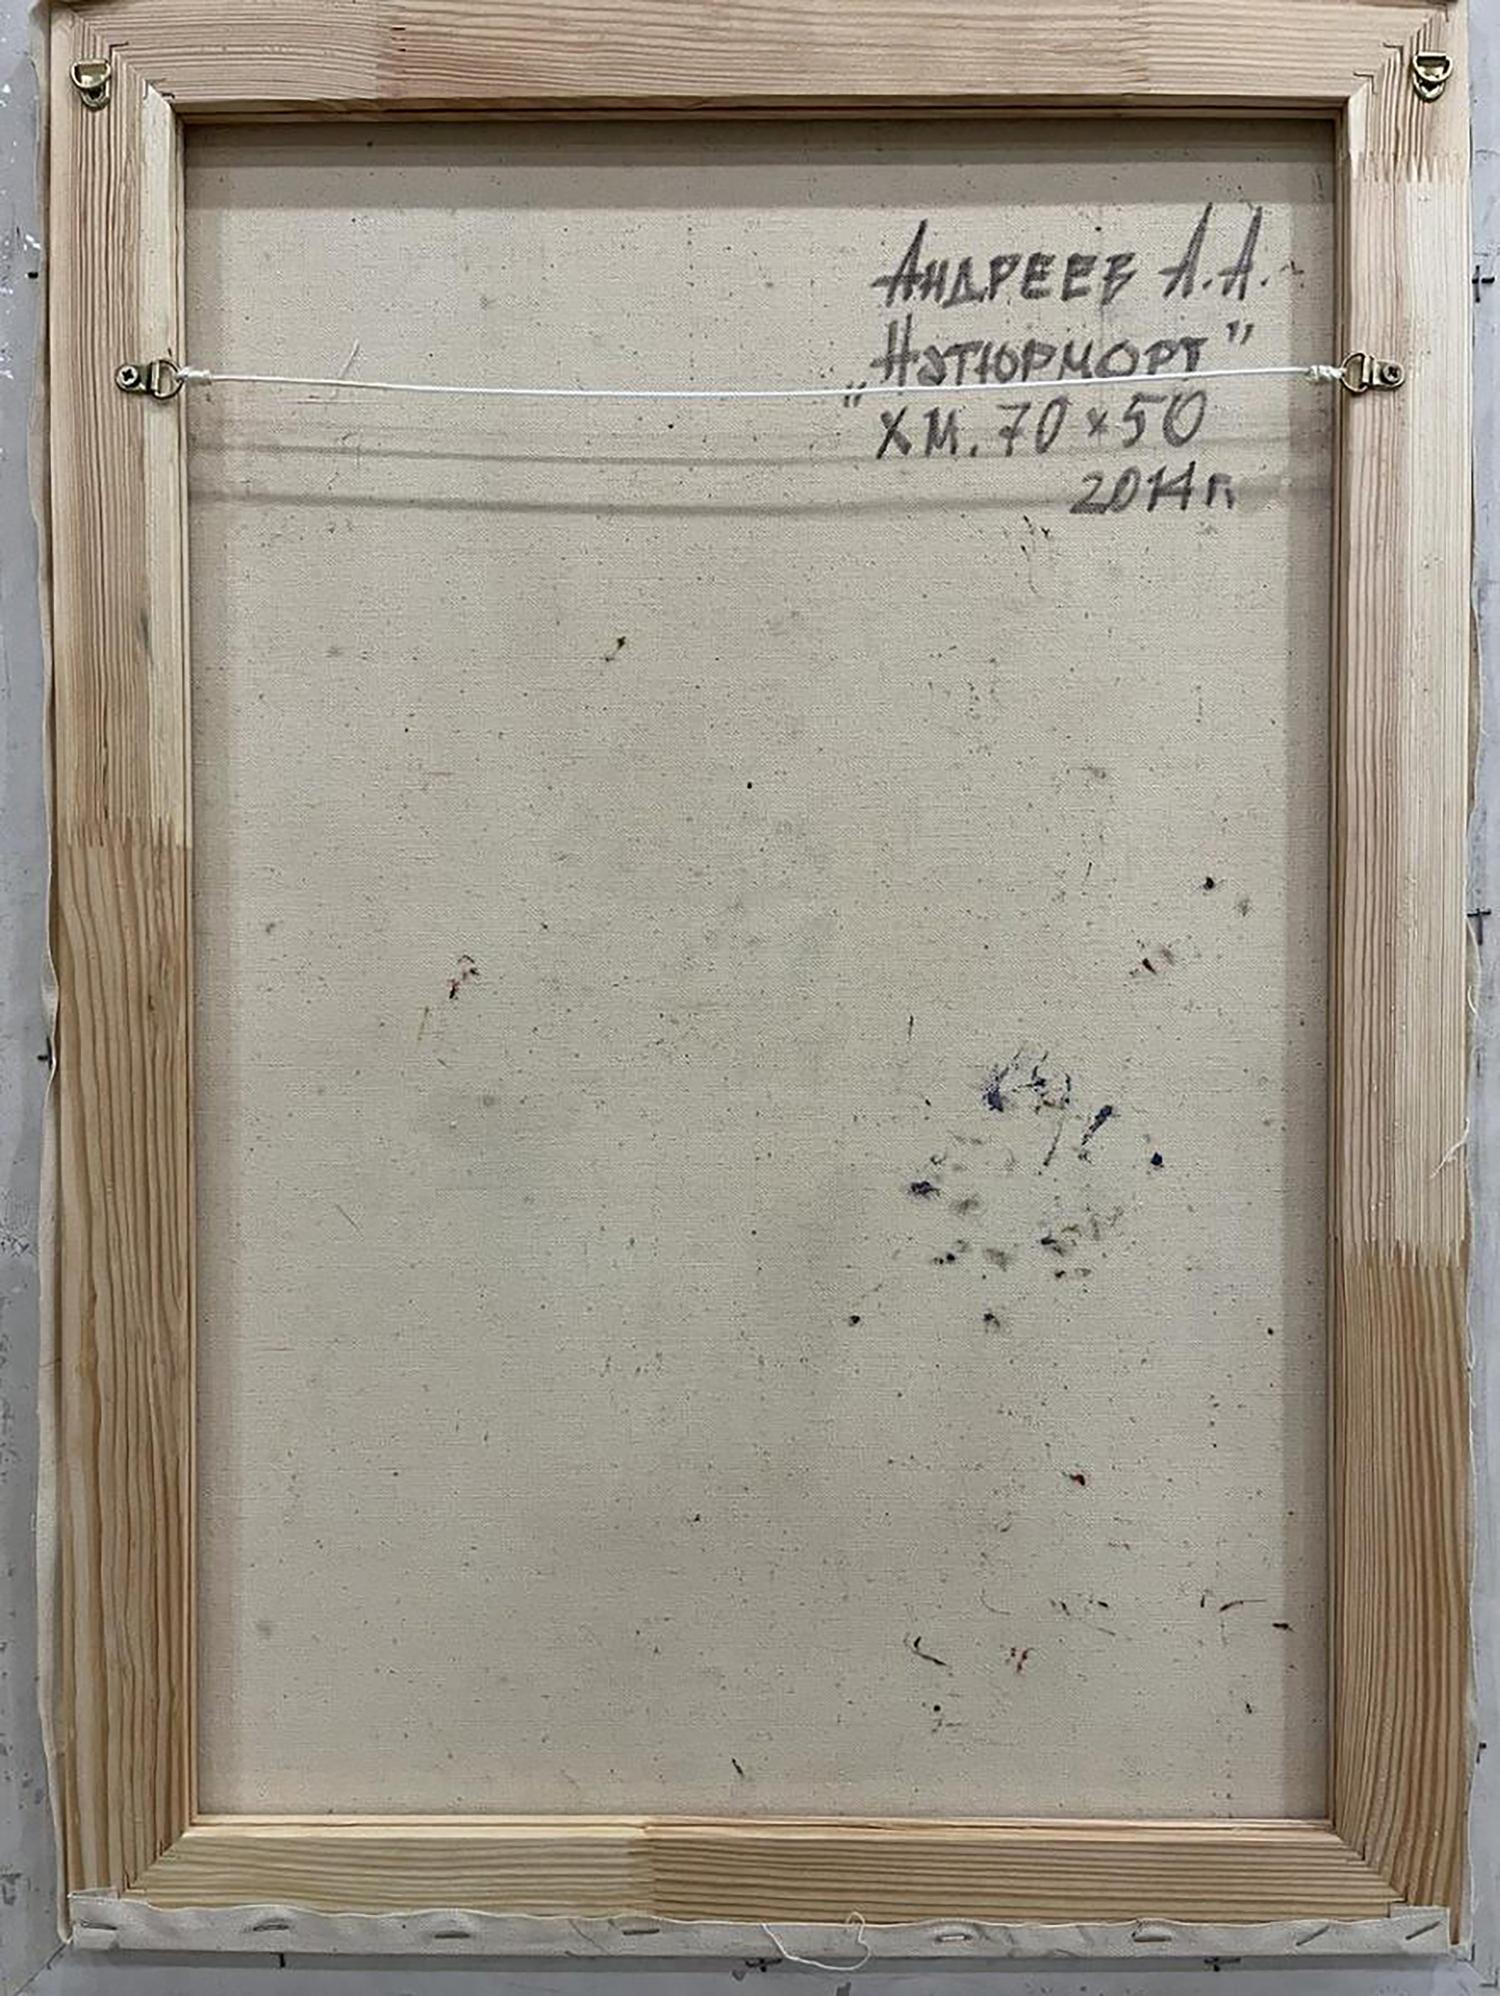 Андреев А.А.
"Натюрморт"
Х М. 70 x 50
2014 г.